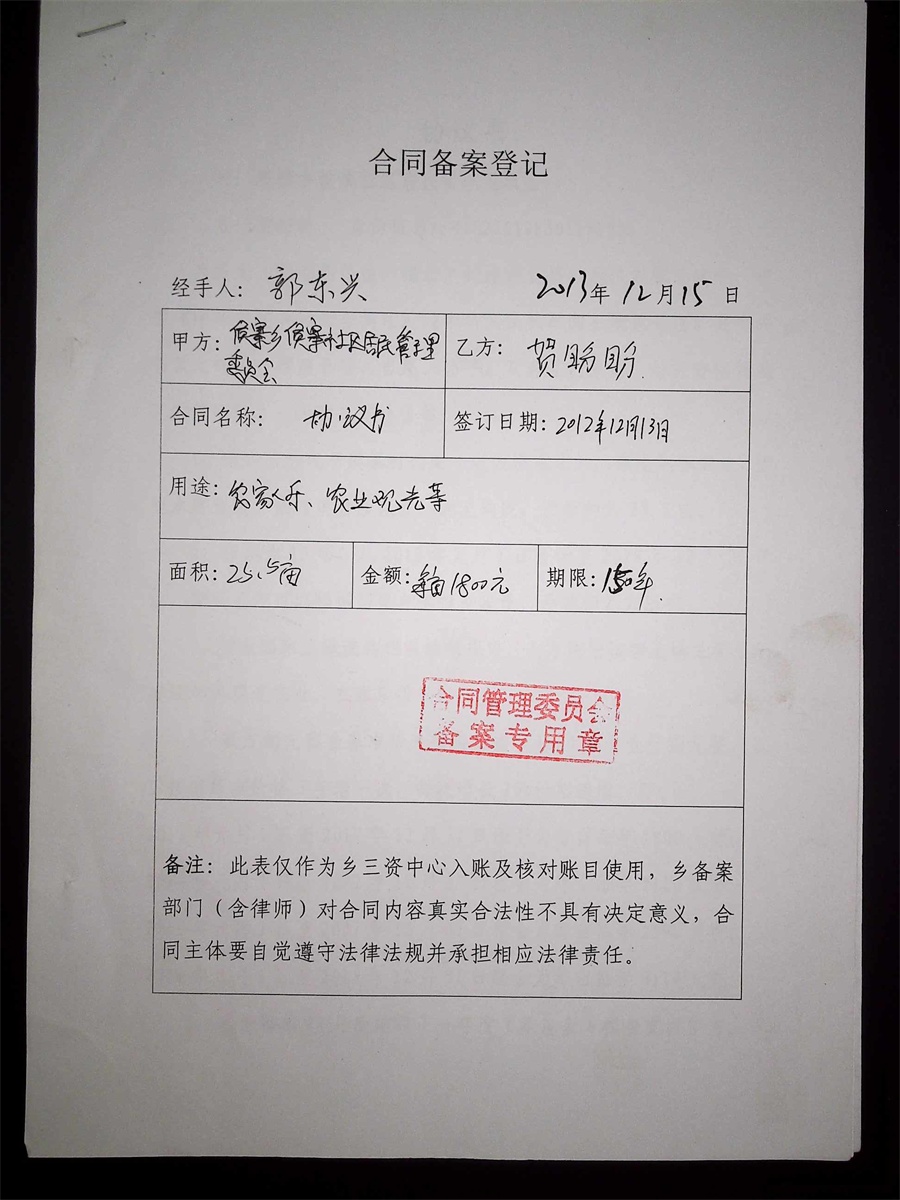 合同备案登记
经手人：郭东兴 2013年12月15日
甲方：侯寨乡侯寨社区居民管理
委员会
乙方：贺盼盼
合同名称：协议书 签订日期：2012年12月13日
用途：农家乐、农业观光等
面积：25.5亩 金额：每亩1800元 期限：年
合同管理委员会
备案专用章
备注：此表仅作为乡三资中心入账及核对账目使用，乡备案
部门（含律师）对合同内容真实合法性不具有决定意义，合
同主体要自觉遵守法律法规并承担相应法律责任。